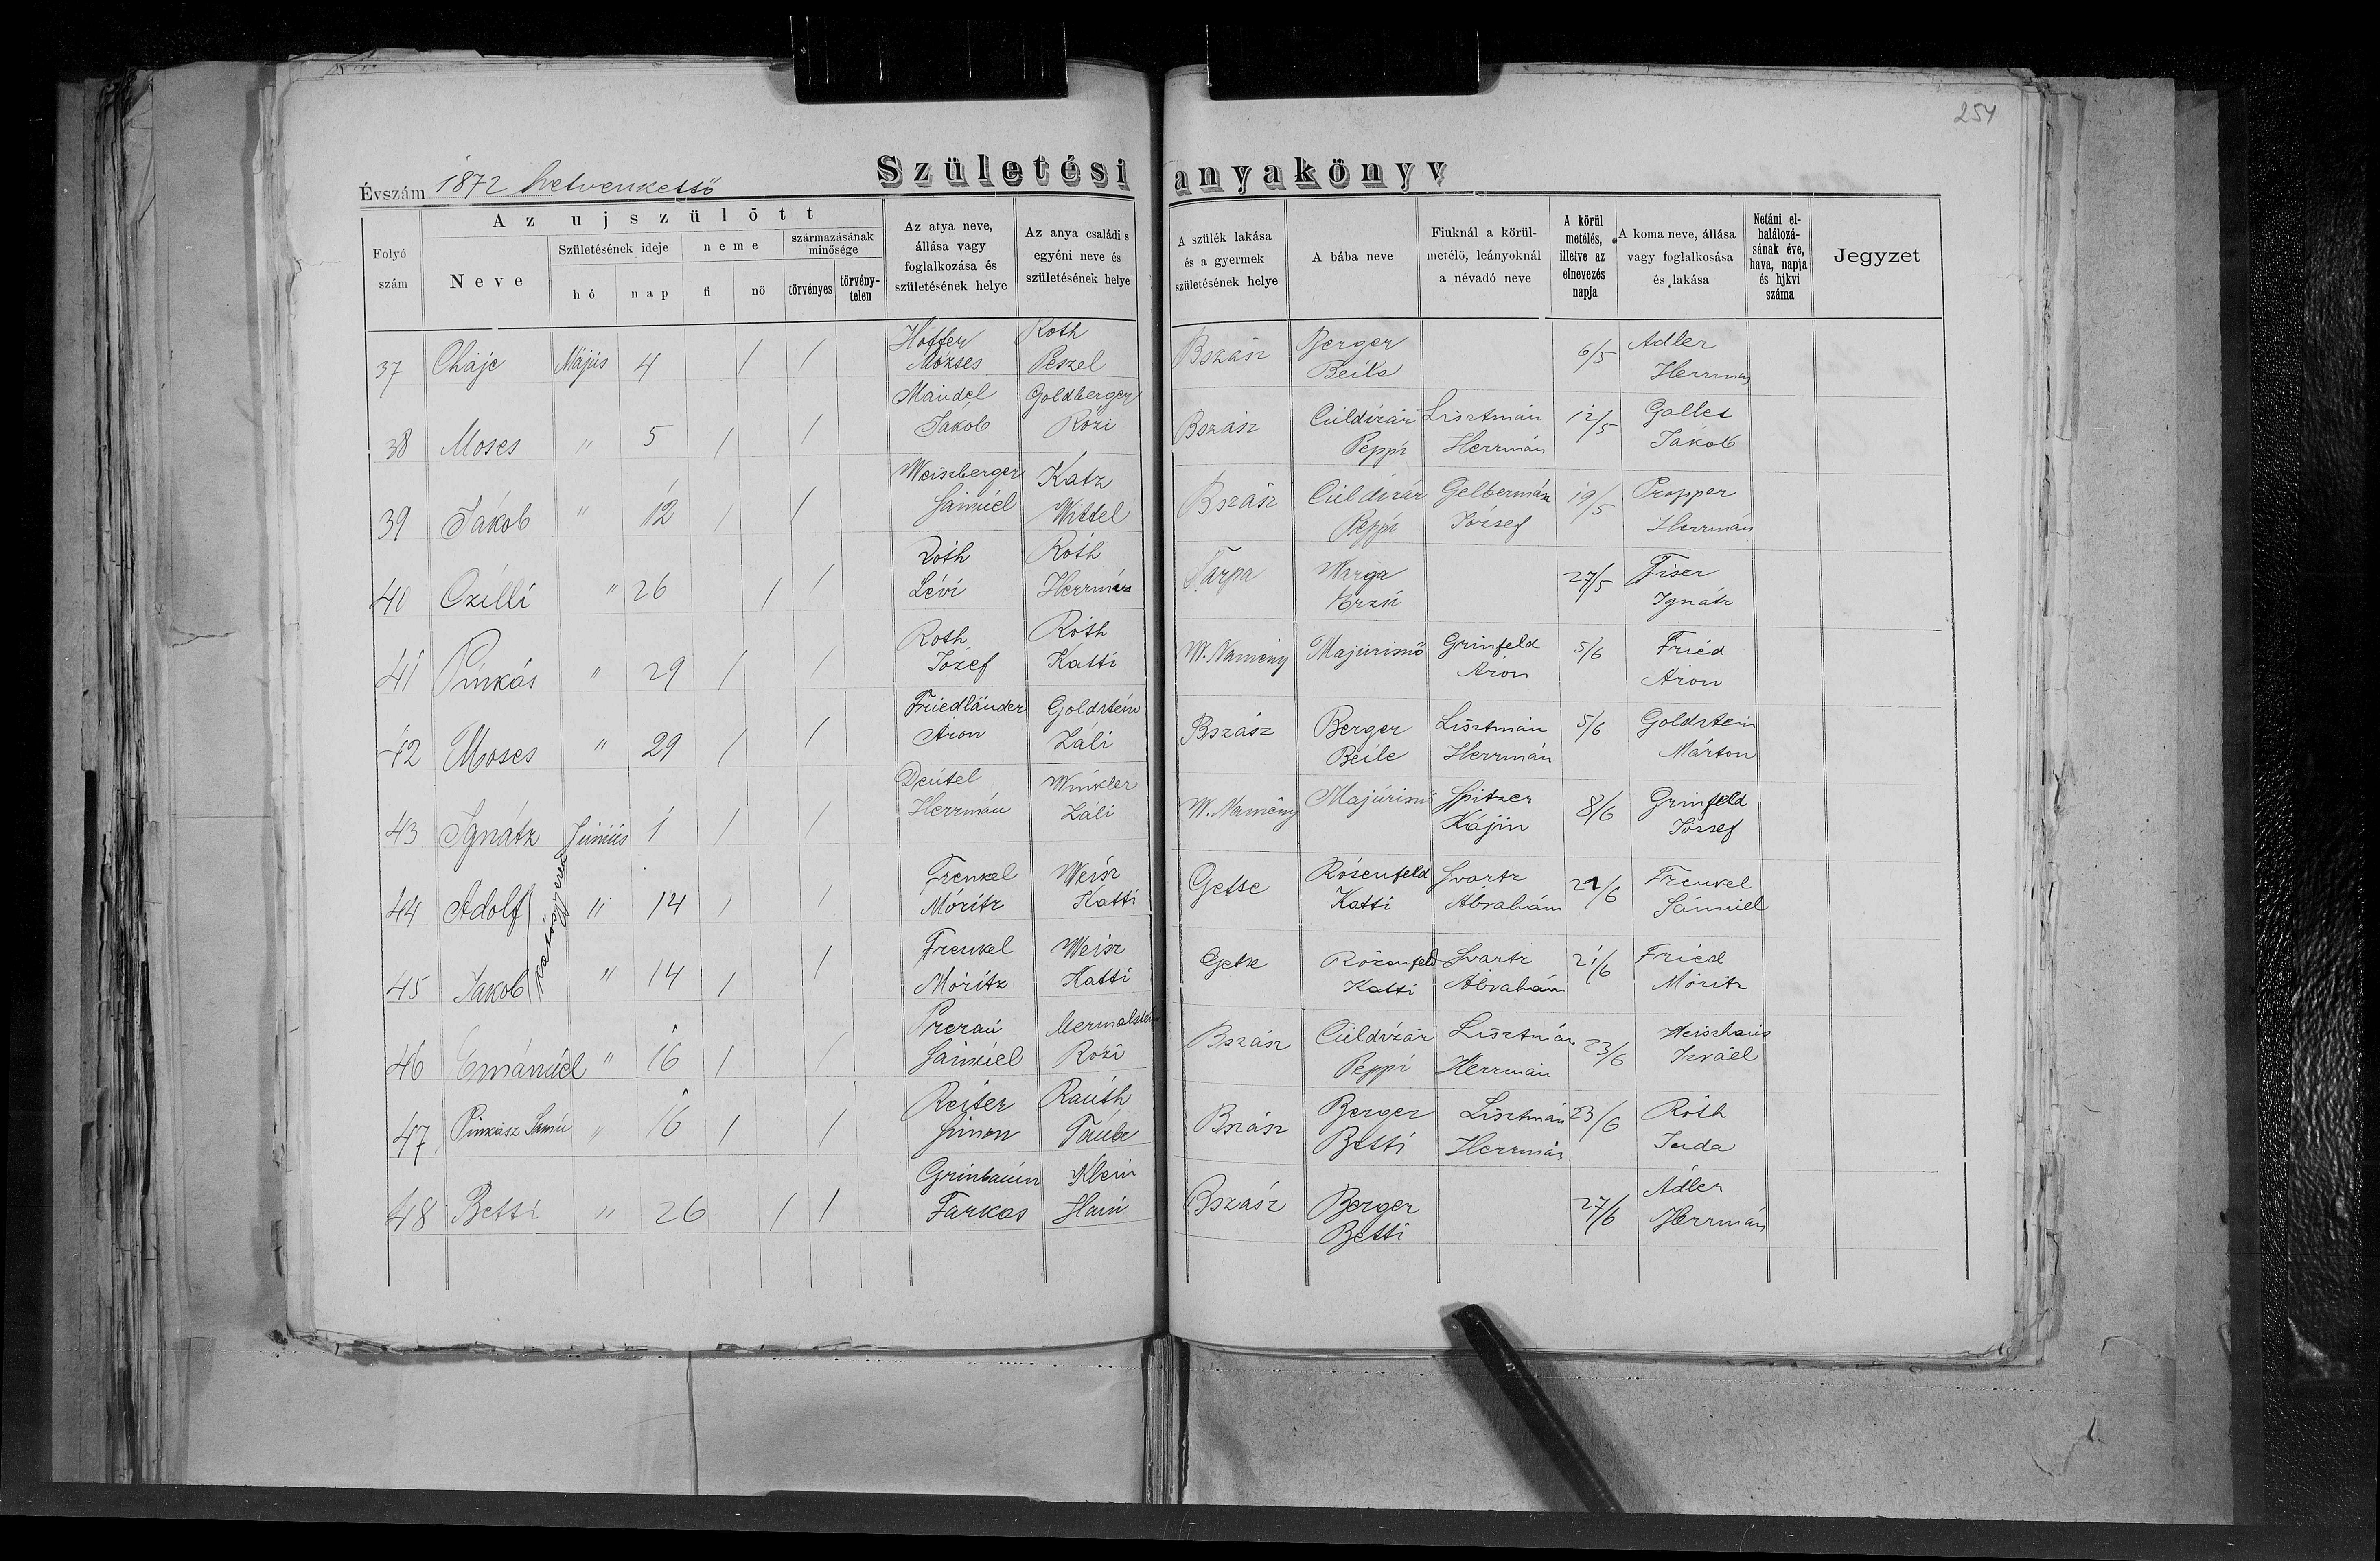 254
Születési anyakönyv
Évszám 1872 hetvenkettő
Folyó szám
Az ujszülött
Neve
Születésének ideje
hó
nap
neme
fi
nö
származásának minősége
törvényes
törvény-telen
Az atya neve, állása vagy foglalkozása és születésének helye
Az anya családi s egyéni neve és születésének helye
A szülék lakása és a gyermek születésének helye
A bába neve
Fiuknál a körül-metélő, leányoknál a névadó neve
A körül metélés, illetve az elnevezés napja
A koma neve, állása vagy foglalkosása és lakása
Netáni el-halálozá-sának éve, hava, napja és hjkvi száma
Jegyzet
37 Chaje Május 4 / / Hoffer Mózses Roth Peszel Bszász Berger Beile 6/5 Adler Herrman
38 Moses " 5 / / Mandel Jákob Goldberger Rózi Bszász Peppi Lisztmán Herrmán 12/5 Jákob
39 Jákob " 12 / / Weiszberger Sámúel Katz Wittel Bszász Peppi Gelbermán József 19/5 Propper Herrmán
40 Czilli " 26 / / Roth Lévi Roth Herrmán Tarpa Warga Erzsi 27/5 Fiser Ignátz
41 Pinkás " 29 / / Roth Józef Róth Katti W. Namény Majurisnő Grinfeld Áron 5/6 Fried Áron
42 Moses " 29 / / Friedländer Áron Goldstein Záli Bszász Berger Beile Lisztmán Herrmán 5/6 Goldstein Márton
43 Ignátz Június 1 / / Deutel Herrmán Winkler Záli W. Namény Majúrisnő Spitzer Kájin 8/6 Grinfeld József
44 Adolf " 14 / / Frenkel Móritz Weisz Katti Getse Rózenfeld Katti Svartz Ábrahám 21/6 Frenkel Sámúel
45 Jakob " 14 / / Frenkel Móritz Weisz Katti Getse Rózenfeld Katti Svartz Ábrahám 21/6 Fried Móritz
46 Emánúel " 16 / / Sámúel Mermelstein Rózi Bszász Peppi Lisztmán Herrmán 23/6 Weiszhaus Izráel
47 Pinkász Sámú " 16 / / Reiter Simon Rauth Taube Bszász Berger Betti Lisztmán Herrmán 23/6 Róth Juda
48 Betti " 26 / / Grinbaum Farkas Klein Hani Bszász Berger Betti 27/6 Adler Herrmán